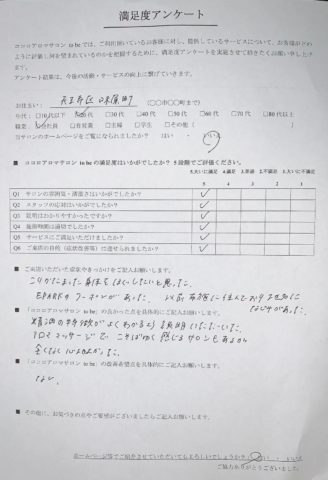 満足度アンケート
ココロアロマサロン to be では、ご利用頂いているお客様に対し、提供しているサービスについて、お客様がどのように評価し何を望まれているのかを把握するために、満足度アンケートを実施させて頂きたくお願い申し上げます。
アンケート結果は、今後の活動・サービスの向上に繋げていきます。
お住まい： 天王寺区 味原町 （○○市○○町まで）
年代：□10代以下 □20代 □30代 □40代 □50代 □60代 □70代 □80代以上
職業：□会社員 □自営業 □主婦 □学生 □その他（ ）
ホームページをご覧になられましたか？ はい ・ いいえ
■ ココロアロマサロン to be の満足度はいかがでしたか？5段階でご評価ください。
5.大いに満足 4.満足 3.普通 2.不満足 1.大いに不満足
5 4 3 2 1
Q1 サロンの雰囲気・清潔さはいかがでしたか？ ✓
Q2 スタッフの応対はいかがでしたか？ ✓
Q3 説明はわかりやすかったですか？ ✓
Q4 施術時間は適切でしたか？ ✓
Q5 サービスにご満足いただけましたか？ ✓
Q6 ご来店の目的（症状改善等）は達せられましたか？ ✓
■ ご来店いただいた症状やきっかけをご記入お願いします。
こりがたまった身体をほぐしたいと思った。
EPARKのクーポンがあった。以前 布施に住んでおり お
なじみがあった。
■ 「ココロアロマサロン to be」の良かった点を具体的にご記入お願いします。
精油の特徴がよくわかるよう説明いただいた。
アロママッサージで こそばゆく感じるサロンもあるが
全くなく
■ 「ココロアロマサロン to be」の改善希望点を具体的にご記入お願いします。
なし。
■ その他に、お気づきの点やご要望がございましたらご記入お願いします。
ホームページ等でご紹介させていただいてもよろしいでしょうか？ はい ・ いいえ
ご協力ありがとうございました。